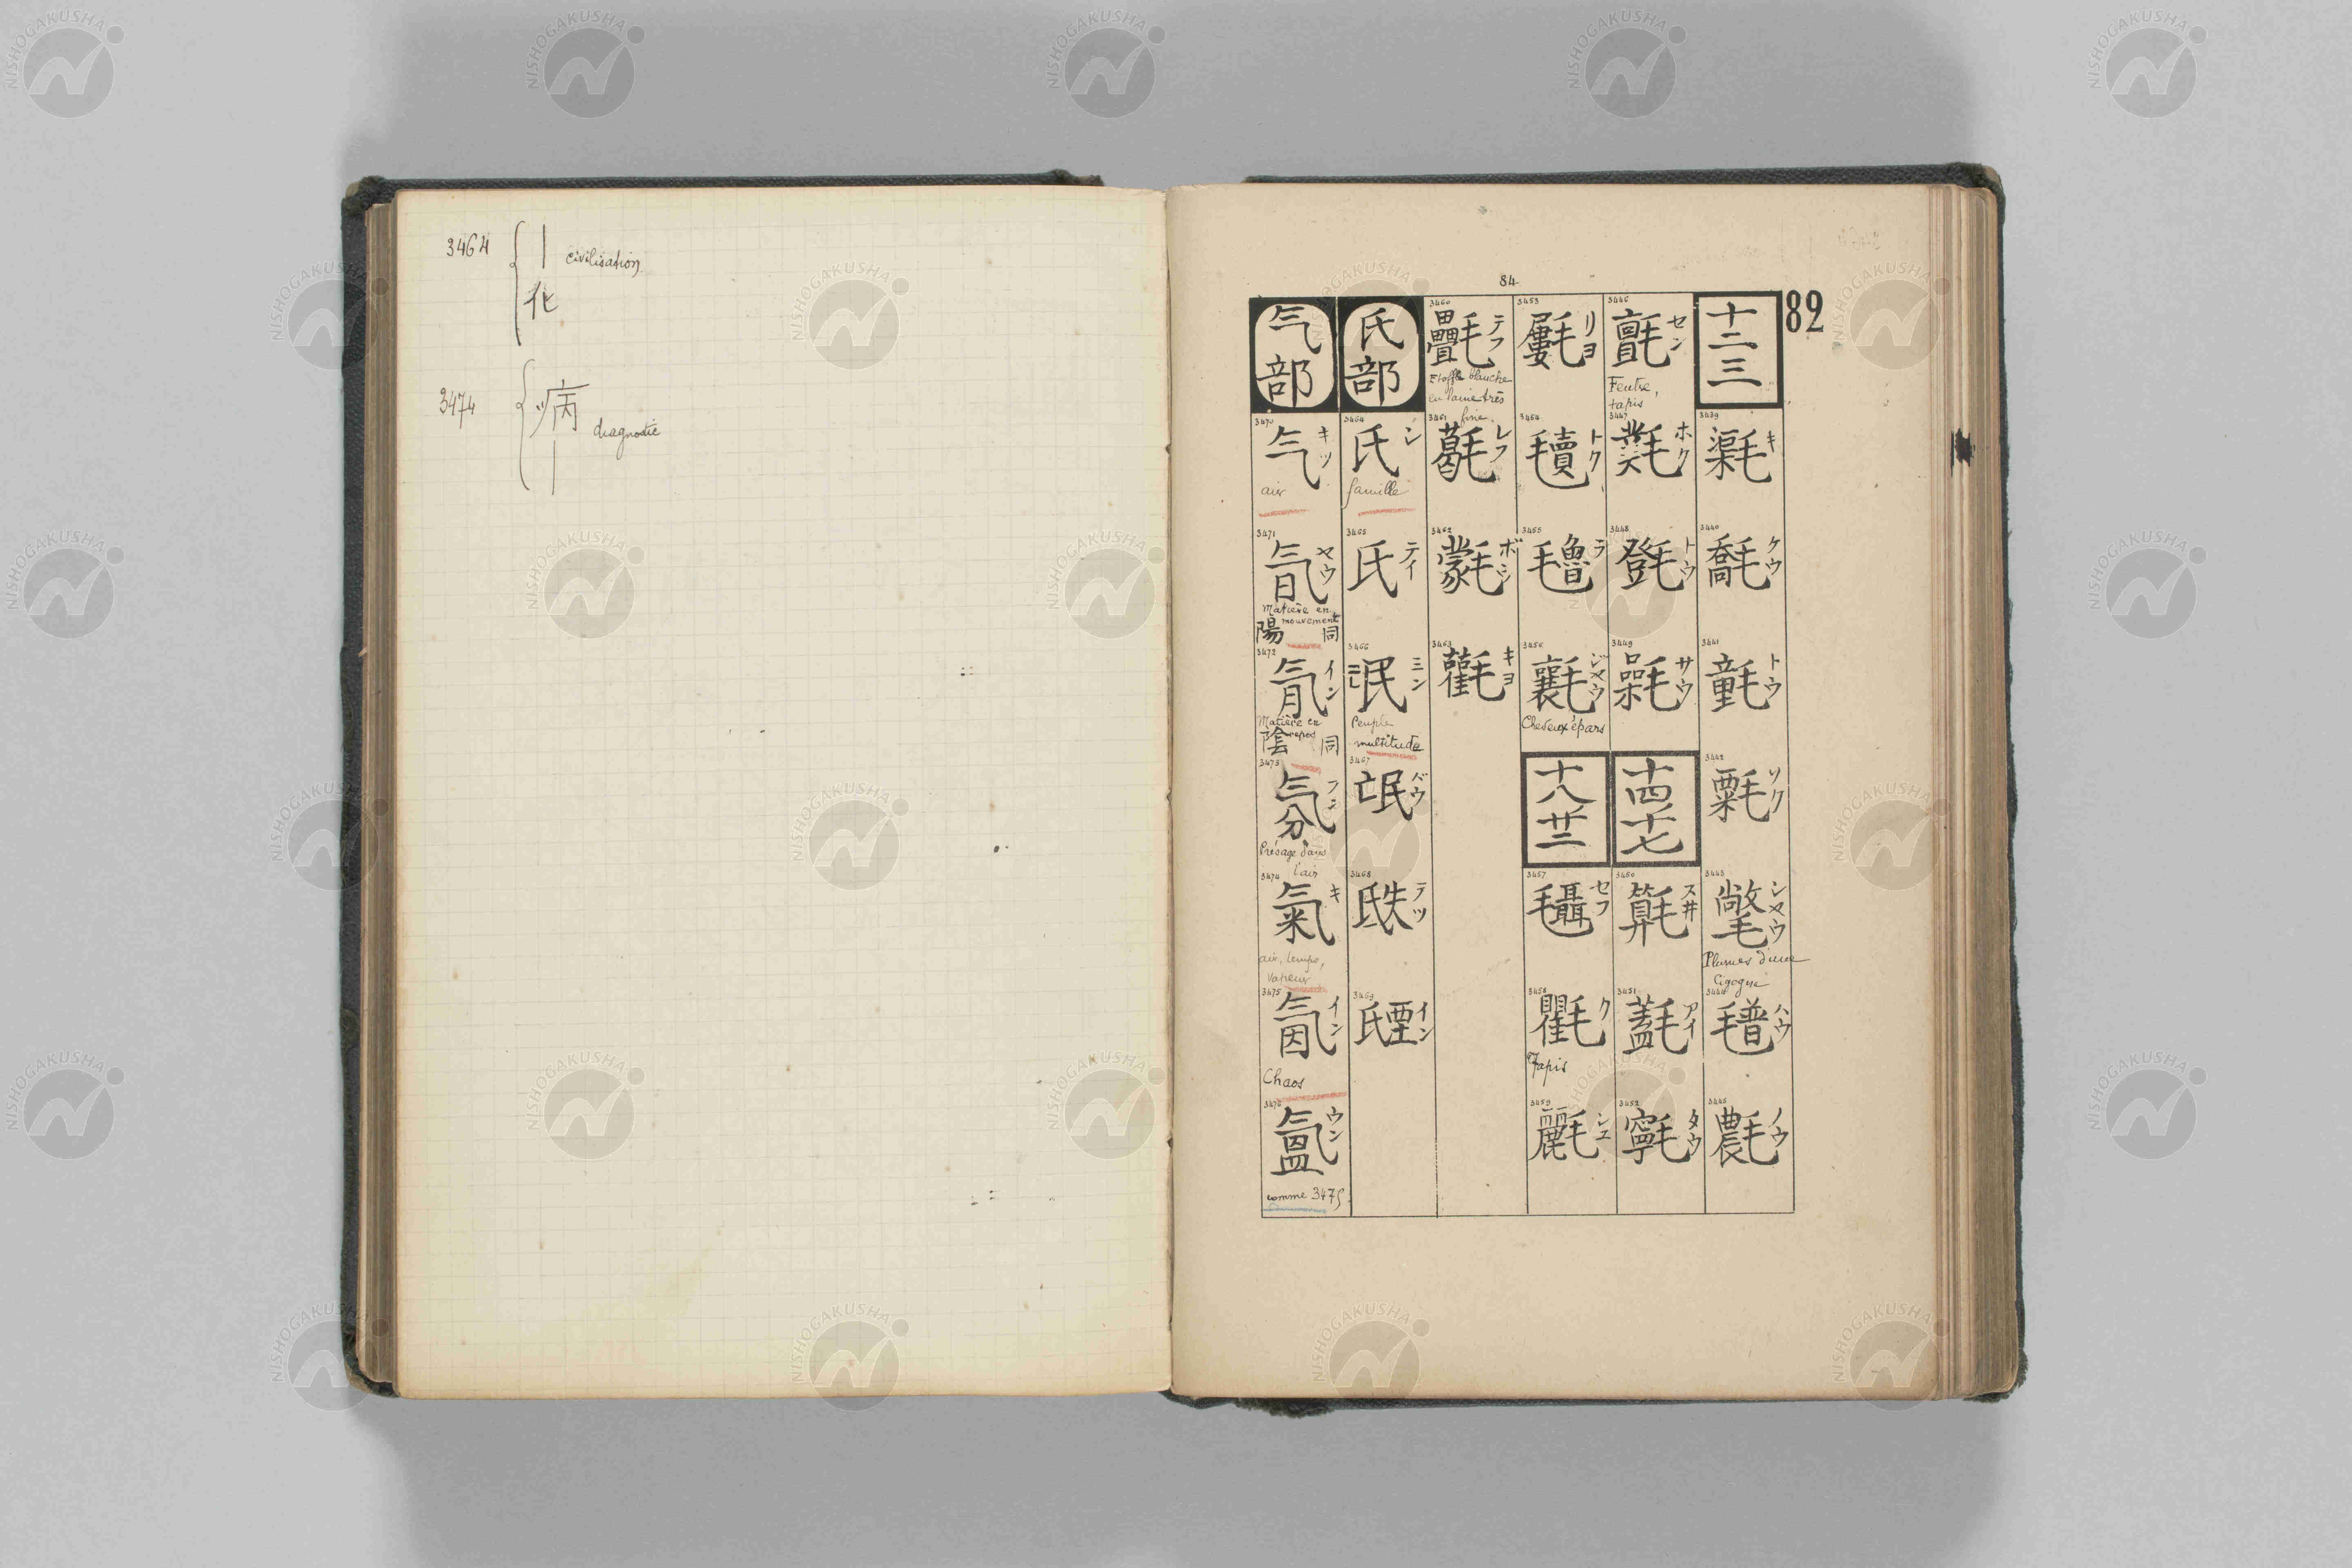 3464
| civilisation
化
3474
病
diagnostic
|
84
82
十二
三
3439
キ
3440
ケウ
3441
トウ
3442
ソク
3443
シャウ
Plumes d'une
Cigogne
3444
ハウ
3445
ノウ
農毛
3446
氈 セン
Feutre,
tapis
3447
ホク
3448
氈 トウ
3449
氉 サウ
十四
十七
3450
スヰ
3451
アイ
3452
タウ
3453
リヨ
3454
トク
3455
ラ
3456
ジヤウ
Cheveux épars
十八
廿二
3457
セフ
3458
氍 ク
Tapis
3459
シユ
3460
氎 テフ
Etoffe blanche
en laine très
fine
3461
レフ
3462
ボウ
3463
キヨ
氏部
3464
氏 シ
famille
3465
氐 テイ
3466
泯 ミン
Peuple
multitude
3467
氓 バウ
3468
テツ
3469
イン
气部
3470
气 キツ
air
3471
ヤウ
Matière en
mouvement
陽 同
3472
イン
Matière en
repos
陰 同
3473
氛 フン
Présage dans
l'air
3474
氣 キ
air, temps,
vapeur
3475
氤 イン
Chaos
3476
氳 ウン
comme 3475
NISHOGAKUSHA